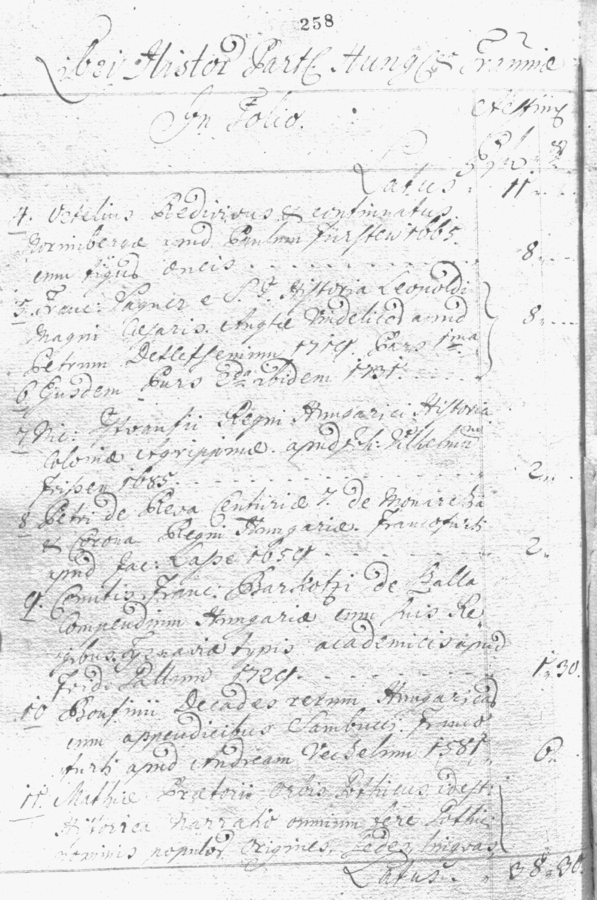 258
Libri Histor Part Hung Tranniæ
In Folio.
Æstim
fl xr
Latus. 11
4. Ortelius Redivivus & continuatus.
Norimbergæ apud Paulum Fürsten 1665.
cum figuris æneis 8
5. Franc: Wagner e S. J. Historia Leopoldi
Magni Cæsaris. Augtæ Vindelicor apud 8
Petrum Detleffsenium 1719 Pars 1ma
6 Ejusdem Pars 2da ibidem 1731.
7 Nic: Isthvanfii Regni Hungarici Historia
Coloniæ Agrippinæ. apud Wilhelmum
Frissen 1685. 2
8 Petri de Reva Centuriæ 7. de Monarchia
& Corona Regni Hungariæ. Francofurti
apud Jac: Lasse 1659. 2.
9. Comitis Franc: Barkotzi de Szalla
Compendium Hungariæ cum suis Re
gibus. Tyrnaviæ typis academicis apud
Frid: Gallum 1729. 1.30.
10 Bonfinii Decades rerum Hungaricar
cum appendicibus Sambuci. Franco
furti apud Andream Wechelium 1581 6.
11. Mathiæ Prætorii Orbis Gothicus id est
Historica Narratio omnium fere Gothici
nominis populor. Origines, Sedes, linguas
Latus. 38.30.